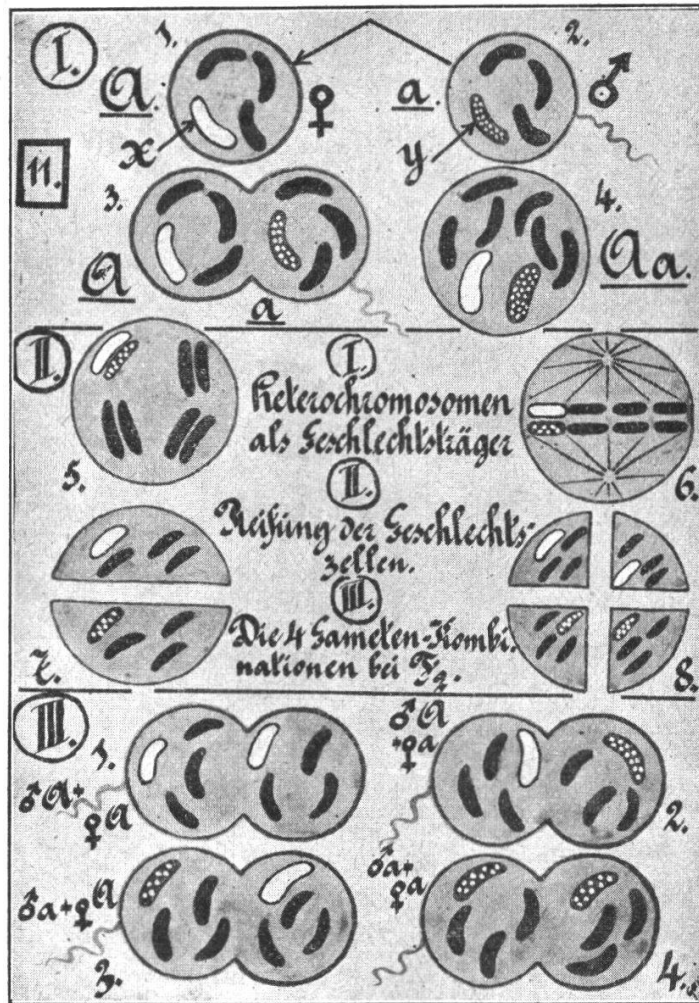 I.
1.
2.
A.
♀
a.
♂
x
y
11.
3.
4.
A
a
Aa.
II.
I.
Heterochromosomen
als Geschlechtsträger
5.
6.
II.
Reifung der Geschlechts-
zellen.
III.
Die 4 Gameten-Kombi-
nationen bei F₂.
7.
8.
III.
1.
♂A+
♀A
♂A
+♀a
2.
♂a+♀A
3.
♂a+
♀a
4.